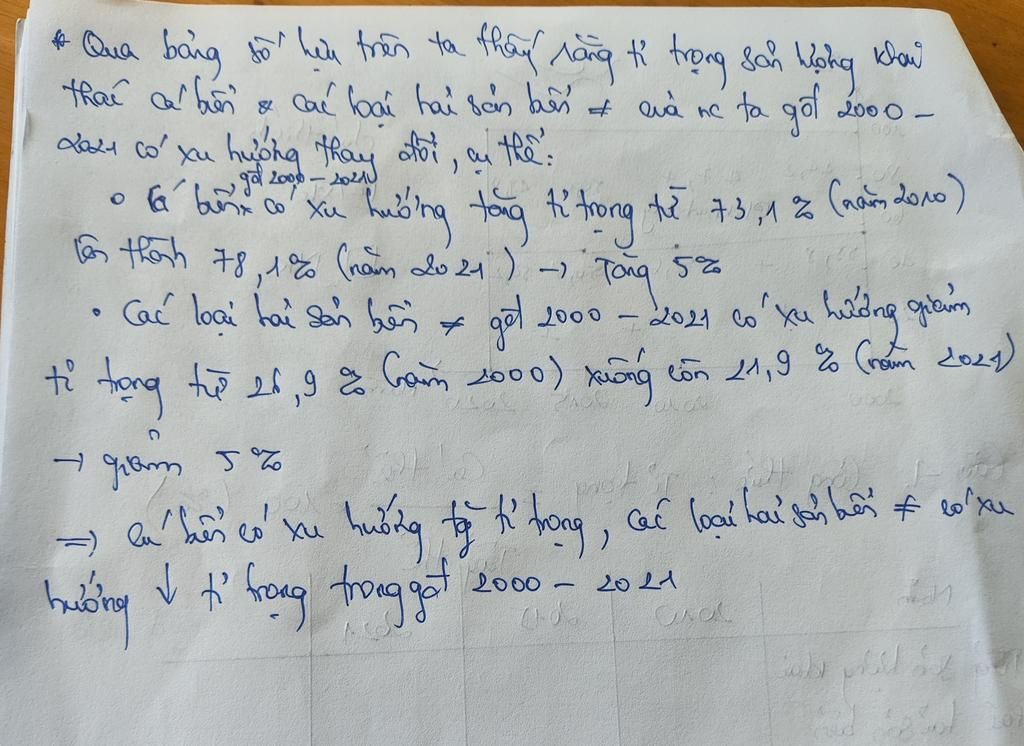 * Qua bảng số liệu trên ta thấy rằng tỉ trọng sản lượng khai
thác cá biển & các loại hải sản biển ≠ của nc ta gđ 2000 –
2021 có xu hướng thay đổi, cụ thể:
gđ 2000 – 2021
• Cá biển có xu hướng tăng tỉ trọng từ 73,1 % (năm 2010)
lên thành 78,1% (năm 2021) → Tăng 5%
• Các loại hải sản biển ≠ gđ 2000 – 2021 có xu hướng giảm
tỉ trọng từ 26,9 % (năm 2000) xuống còn 21,9 % (năm 2021)
→ giảm 5 %
=> Cá biển có xu hướng tg tỉ trọng, các loại hải sản biển ≠ có xu
hướng ↓ tỉ trọng trong gđ 2000 – 2021